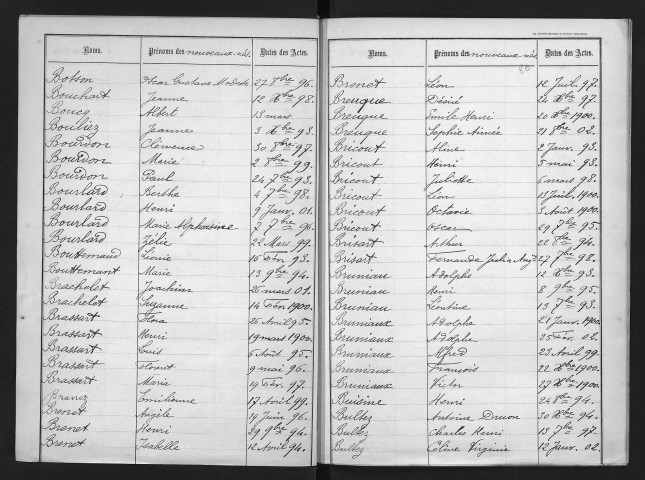 Noms. Prénoms des nouveaux-nés. Dates des Actes.
Botson Oscar Gustave Modeste 27 8bre 96.
Bouchart Jeanne 12 Xbre 98.
Boucq Albert 13 mars
Bouliez Jeanne 3 Xbre 93.
Bourdon Clémence 30 8bre 97.
Bourdon Marie 2 8bre 99.
Bourdon Paul 24 7bre 93.
Bourlard Berthe 4 7bre 98.
Bourlard Henri 9 Janv. 01.
Bourlard Marie Alphonsine 7 7bre 96.
Bourlard Zélie 22 Mars 99.
Bouttemand Léonie 16 Fév. 93.
Bouttemant Marie 13 9bre 94.
Brachelet Joachim 26 mars 01.
Brachelet Suzanne 14 Fév. 1900.
Brassart Flora 26 Avril 95.
Brassart Henri 19 mars 1900.
Brassart Louis 6 Août 95.
Brassart 9 mai 96.
Brassart Marie 14 Fév. 97.
Emilienne 17 Avril 99.
Brenet Angèle 19 Juin 96.
Brenet Henri 29 9bre 94.
Brenet Isabelle 12 Avril 94.
Noms. Prénoms des nouveaux-nés. Dates des Actes.
Brenet Léon 12 Juil. 97.
Breuque Désiré 24 Xbre 97.
Breuque Emile Henri 20 Xbre 1900.
Breuque Sophie Aimée 21 8bre 02.
Bricout Aline 2 Janv. 93.
Bricout Henri 5 mai 93.
Bricout Juliette 6 mars 98.
Bricout Léon 13 Juil. 1900.
Bricout Octavie 3 Août 1900.
Bricout Oscar 29 7bre 95.
Brisart Arthur 22 8bre 94.
Brisart Fernande Julia 27 7bre 98.
Bruniau Adolphe 12 Xbre 93.
Bruniau Henri 8 9bre 95.
Bruniau Léontine 13 7bre 93.
Bruniaux Adolphe 21 Janv. 1900.
Bruniaux Adolphe 25 Fév. 02.
Bruniaux Alfred 23 Avril 99.
Bruniaux François 22 Xbre 1900.
Bruniaux Victor 27 Xbre 1900.
Buisine Henri 24 8bre 94.
Bultez Antoine Druon 30 Xbre 94.
Bultez Charles Henri 13 7bre 97.
Bultez Céline Virginie 12 Janv. 02.